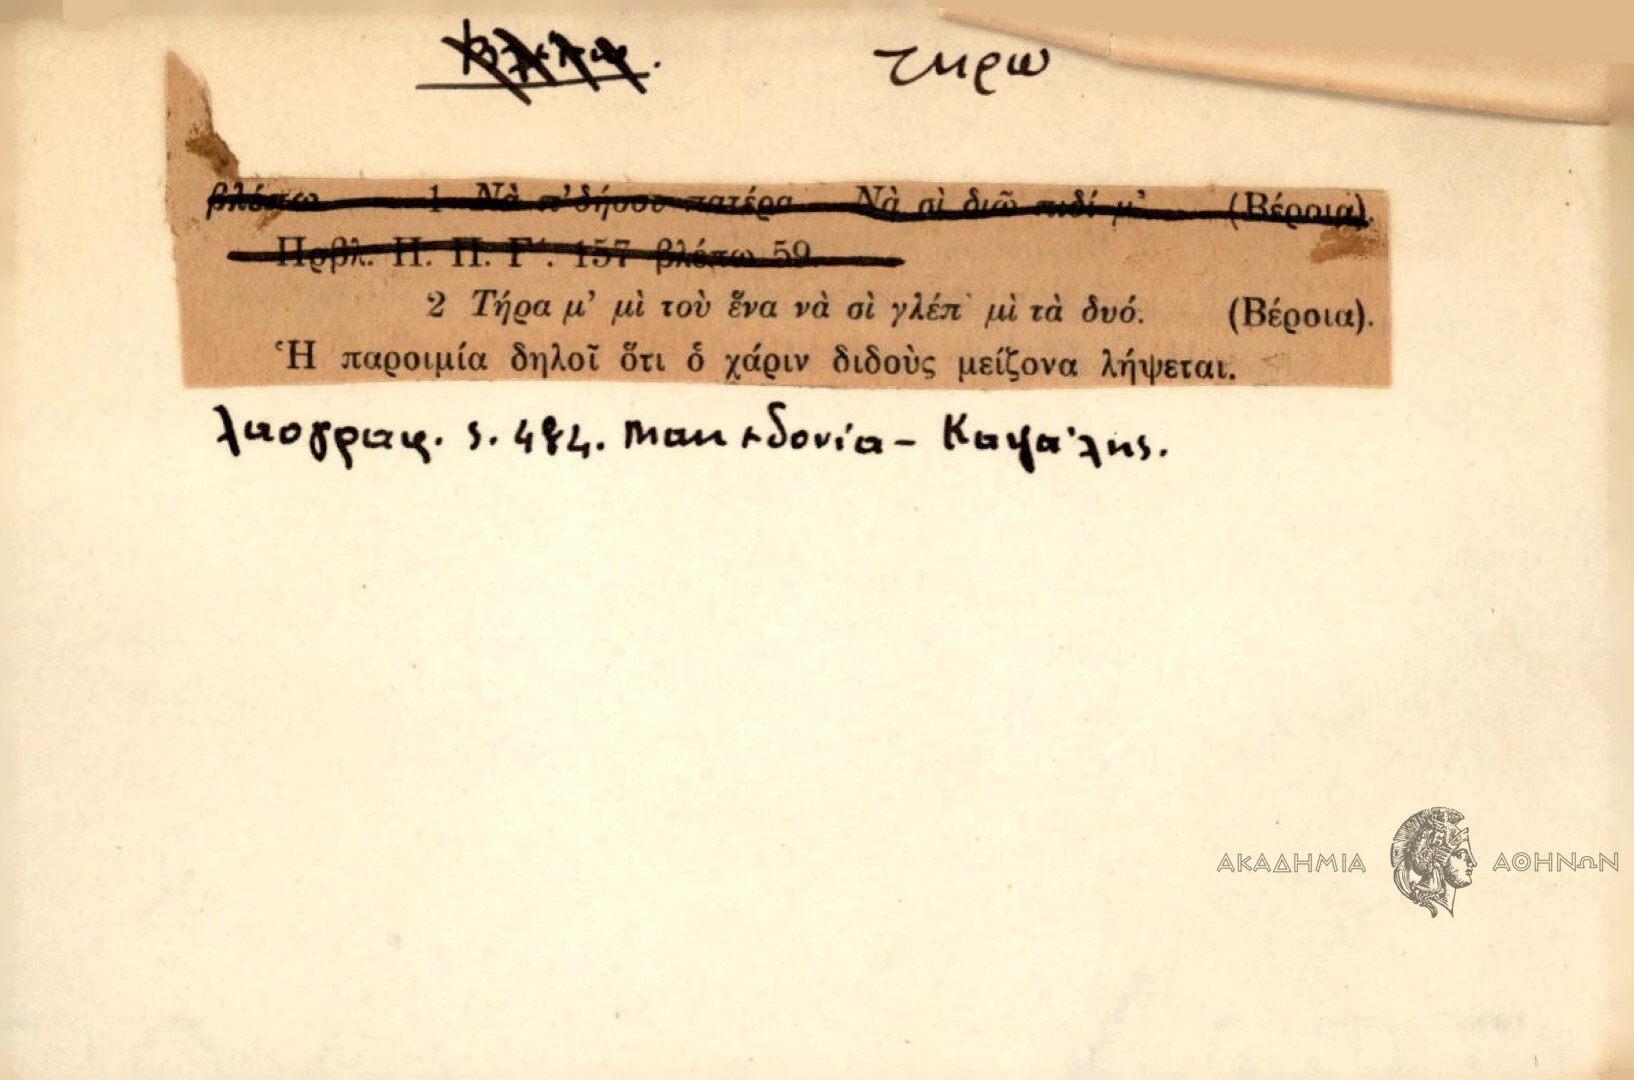 βλέπω. τηρω
βλέπω 1 Νὰ π'δήσου πατέρα Νὰ σὶ διῶ πιδί μ' (Βέροια).
Πρβλ. Π. Π. Γ'. 157 βλέπω 59.
2 Τήρα μ' μὶ τοὺ ἕνα νὰ σὶ γλέπ' μὶ τὰ δυό. (Βέροια).
Ἡ παροιμία δηλοῖ ὅτι ὁ χάριν διδοὺς μείζονα λήψεται.
Λαογραφ. s. 484. Μακεδονία - Καψάλης.
ΑΚΑΔΗΜΙΑ ΑΘΗΝΩΝ